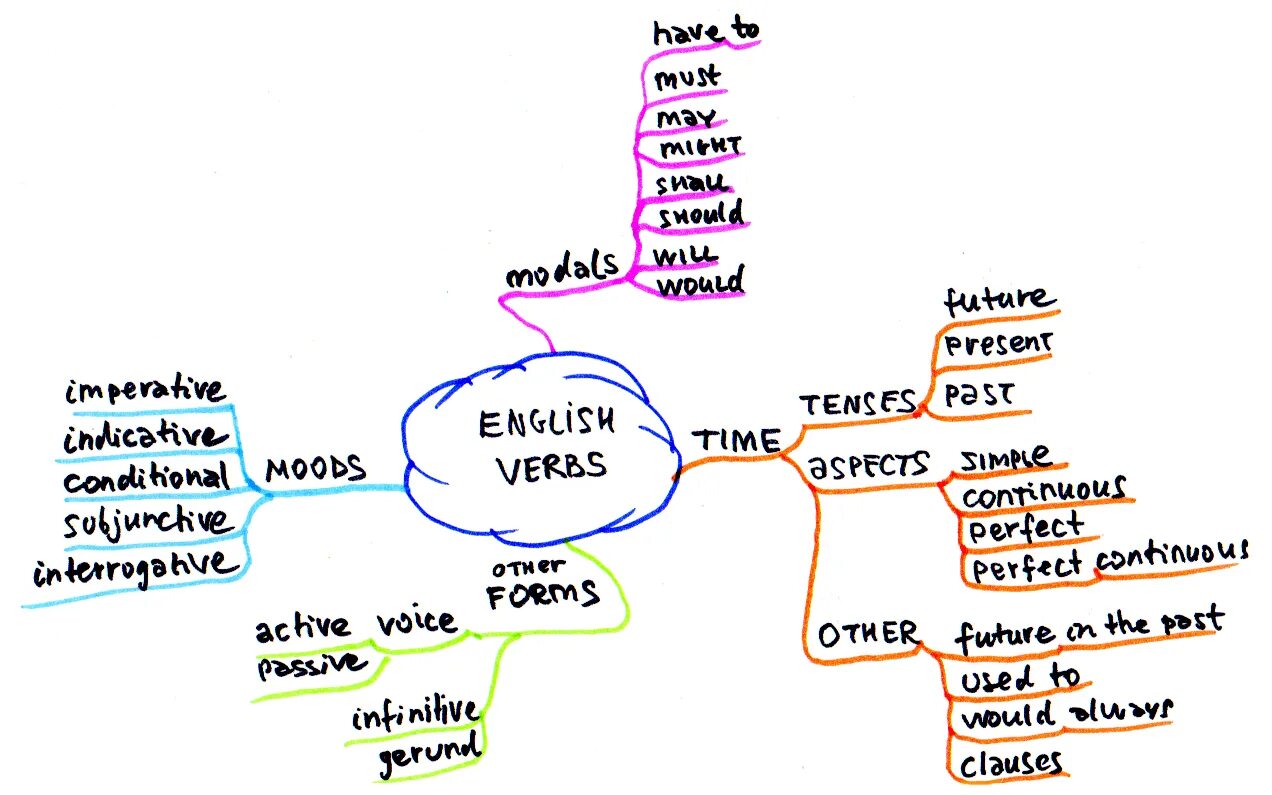 ENGLISH
VERBS
modals
have to
must
may
MIGHT
shall
should
WILL
WOULD
TIME
TENSES
future
present
past
ASPECTS
SIMPLE
continuous
perfect
perfect continuous
OTHER
future in the past
used to
would always
clauses
OTHER
FORMS
voice
active
passive
infinitive
gerund
MOODS
imperative
indicative
conditional
subjunctive
interrogative